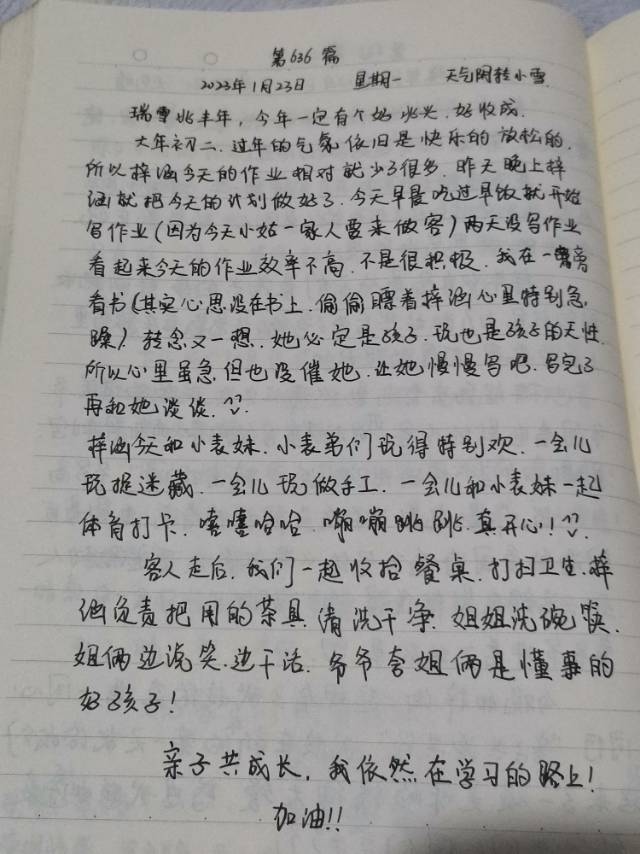 第636篇
2023年1月23日 星期一 天气阴转小雪
瑞雪兆丰年，今年一定有个好兆头，好收成.
大年初二.过年的气氛依旧是快乐的放松的.
所以梓涵今天的作业相对就少了很多.昨天晚上梓
涵就把今天的计划做好了.今天早晨吃过早饭就开始
写作业(因为今天小姑一家人要来做客)两天没写作业
看起来今天的作业效率不高.不是很积极.我在一旁
看书(其实心思没在书上.偷偷瞟着梓涵心里特别急
躁)转念又一想.她必定是孩子.玩也是孩子的天性.
所以心里虽急.但也没催她.让她慢慢写吧.写完了
再和她谈谈.
梓涵今天和小表妹.小表弟们玩得特别欢.一会儿
玩捉迷藏.一会儿玩做手工.一会儿和小表妹一起
体育打卡.嘻嘻哈哈.蹦蹦跳跳.真开心!
客人走后.我们一起收拾餐桌.打扫卫生.梓
涵负责把用的茶具清洗干净.姐姐洗碗筷.
姐俩边说笑.边干活.爷爷夸姐俩是懂事的
好孩子!
亲子共成长，我依然在学习的路上!
加油!!